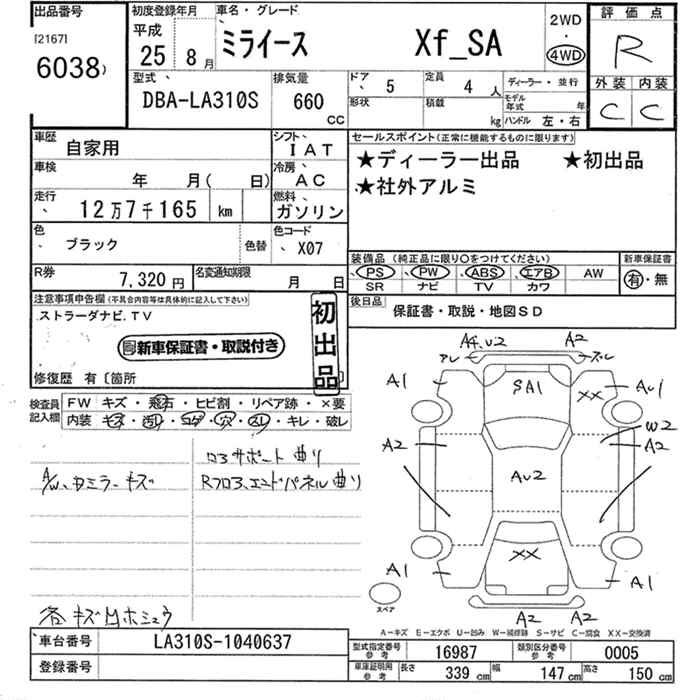 出品番号
[2167]
6038)
初度登録年月
平成
25 8月
車名・グレード
ミライース Xf_SA
2WD
・
4WD
評価点
R
外装 内装
C C
型式
DBA-LA310S
排気量
660
CC
ドア 5
定員 4人
形状
積載 kg
ディーラー・並行
モデル年式 年
ハンドル 左・右
車歴 自家用
シフト IAT
車検 年 月( 日)
冷房 AC
走行 12万7千165 km
燃料 ガソリン
色 ブラック 色替
色コード X07
R券 7,320円
名変通知期限 月 日
セールスポイント(正常に機能するものに限ります)
★ディーラー出品 ★初出品
★社外アルミ
装備品(純正品に限り○をつけてください)
PS PW ABS エアB AW
SR ナビ TV カワ
新車保証書
有・無
後日品 保証書・取説・地図SD
注意事項申告欄(不具合内容等は具体的に記入して下さい)
ストラーダナビ.TV
新車保証書・取説付き
初出品
修復歴 有〔箇所
検査員記入欄
FW キズ・飛石・ヒビ割・リペア跡・×要
内装 キズ・汚レ・コゲ・穴・スレ・キレ・破レ
ロアサポート曲り
A/W、カミラーキズ
RフロアエンドパネルI曲り
各キズ凹ホシュウ
A4,U2
A2
アレ
A1
SA1
XX
AU1
A2
W2
A2
AU2
XX
A1
A1
A2
A2
スペア
A-キズ E-エクボ U-凹み W-補修跡 S-サビ C-腐食 XX-交換済
車台番号 LA310S-1040637
登録番号
型式指定番号 参考 16987
類別区分番号 参考 0005
車庫証明用 参考 長さ 339cm 幅 147cm 高さ 150cm